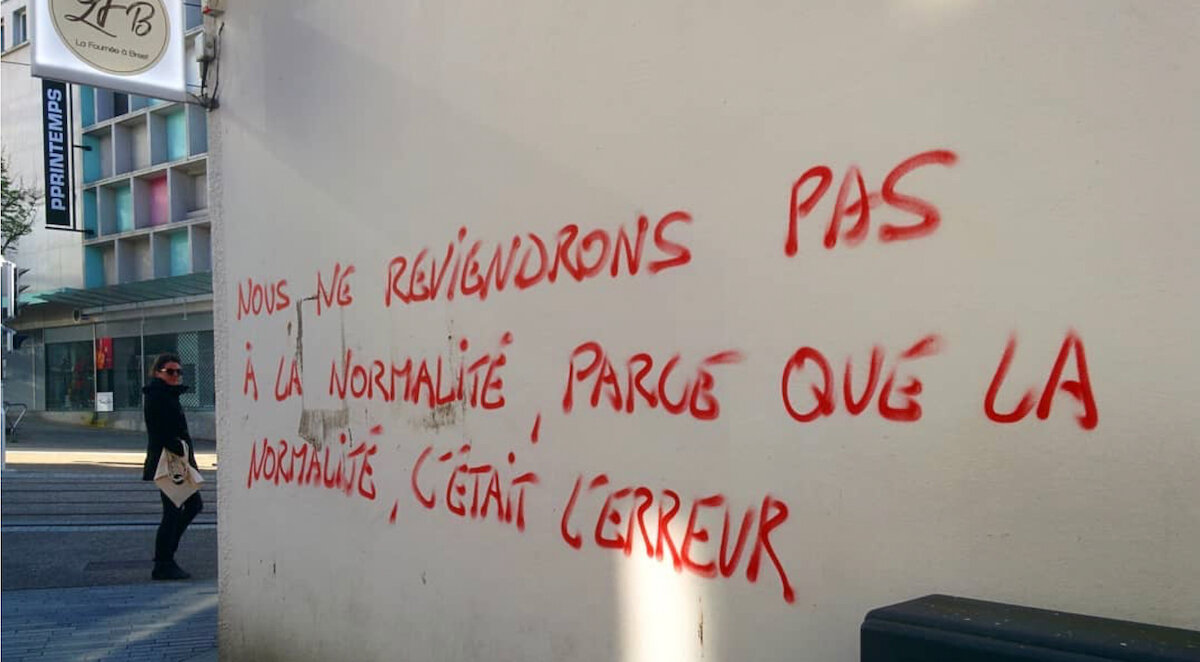 LFB
La Fournée à Brest
PPRINTEMPS
NOUS NE REVIENDRONS PAS
À LA NORMALITÉ, PARCE QUE LA
NORMALITÉ, C'ÉTAIT L'ERREUR